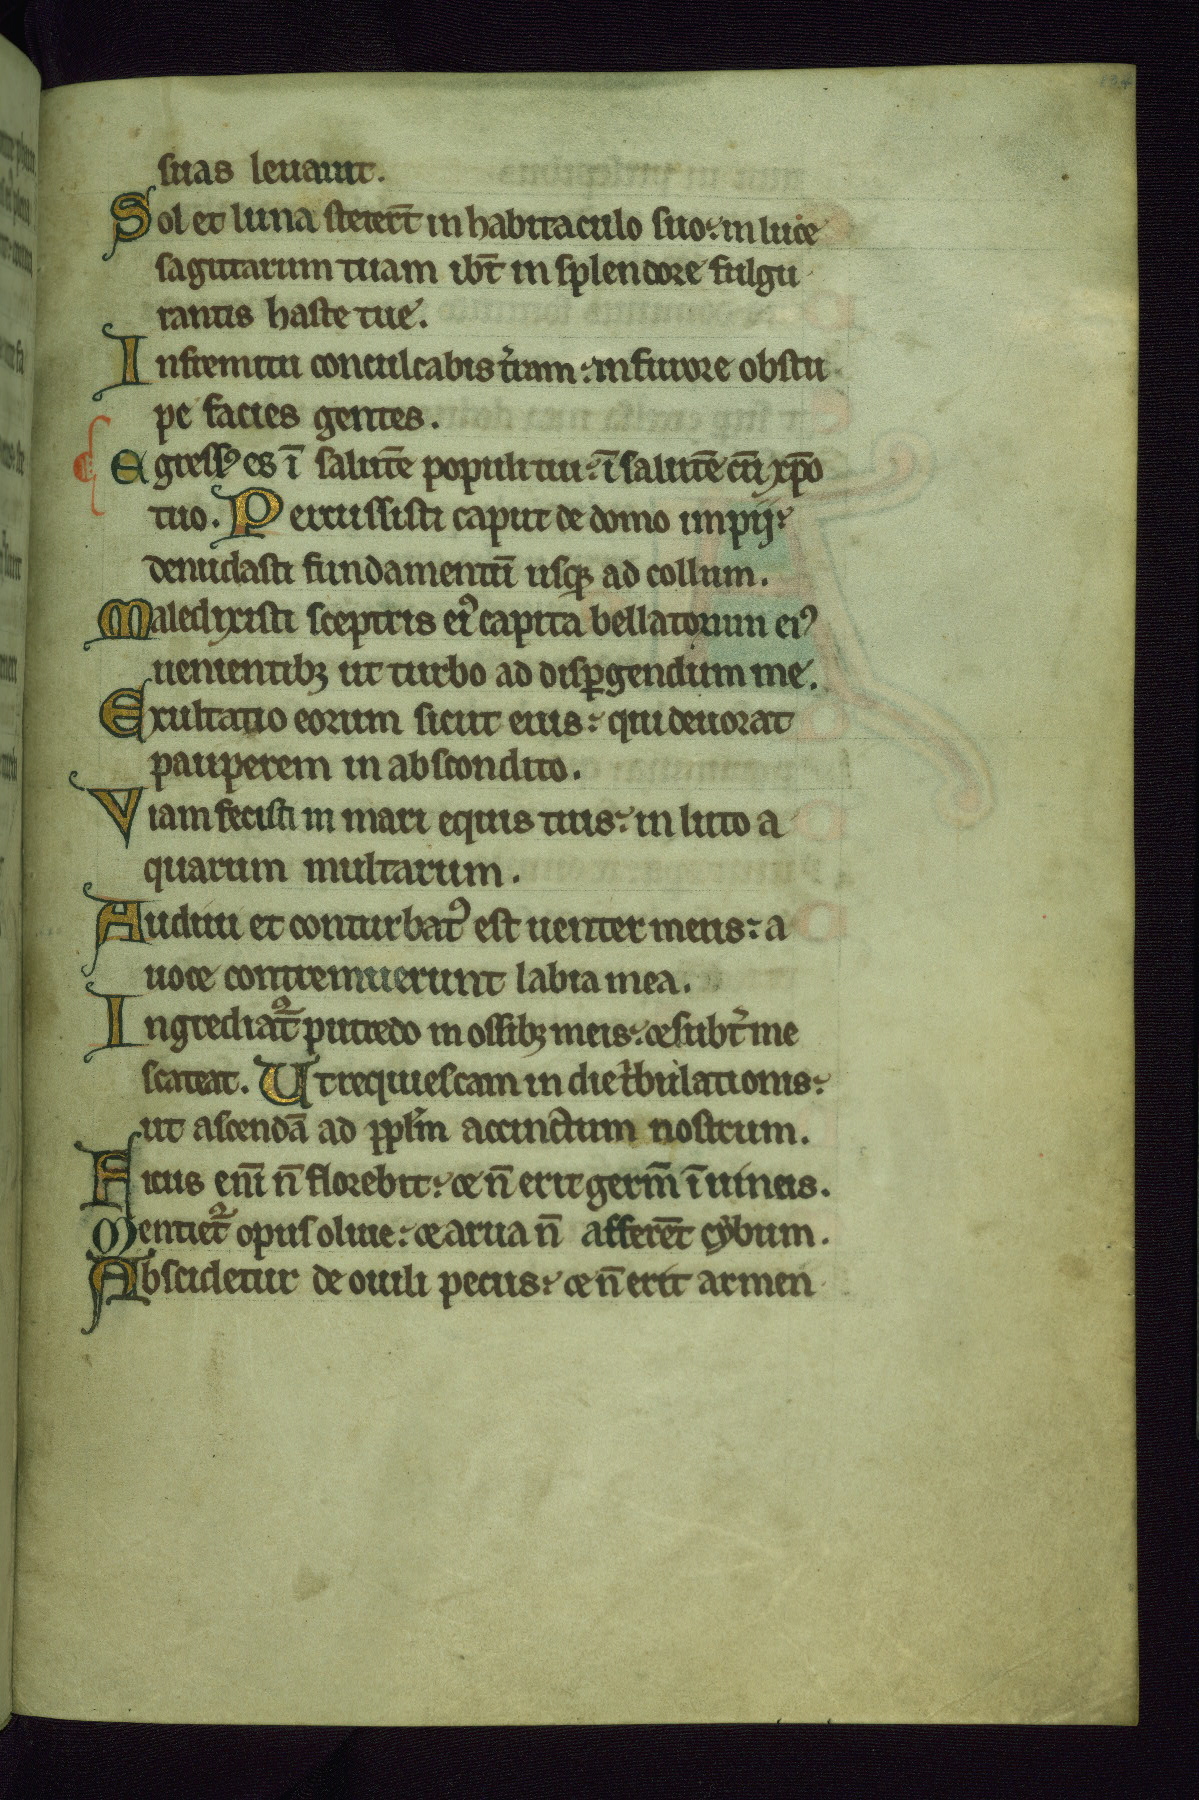 suas leuauit.
Sol et luna steter̄t in habitaculo suo: in luce
sagittarum tuam ibt̄ in splendore fulgu
rantis haste tue.
In fremitu conculcabis t̓ram: in furore obstu
pe facies gentes.
Egress⁹ es ī salutē populi tui: ī salutē cū xp̄o
tuo. Percussisti caput de domo impij:
denudasti fundamentū usq; ad collum.
Maledixisti sceptris ei⁹ capita bellatorum ei⁹
uenientib; ut turbo ad disꝑgendum me.
Exultatio eorum sicut eius: qui deuorat
pauperem in abscondito.
Viam fecisti in mari equis tuis: in luto a
quarum multarum.
Audiui et conturbat⁹ est uenter meus: a
uoce contremuerunt labia mea.
Ingrediat̃ putredo in ossib; meis: & subt̓ me
scateat. Ut requiescam in die t̓bulationis:
ut ascendā ad pp̄lm accinctum nostrum.
Ficus eni̅ n̄ florebit: & n̄ erit germ̄ ī uineis.
Mentiet̃ opus oliue: & arua n̄ afferēt cybum.
Abscidetur de ouili pecus: & n̄ erit armen